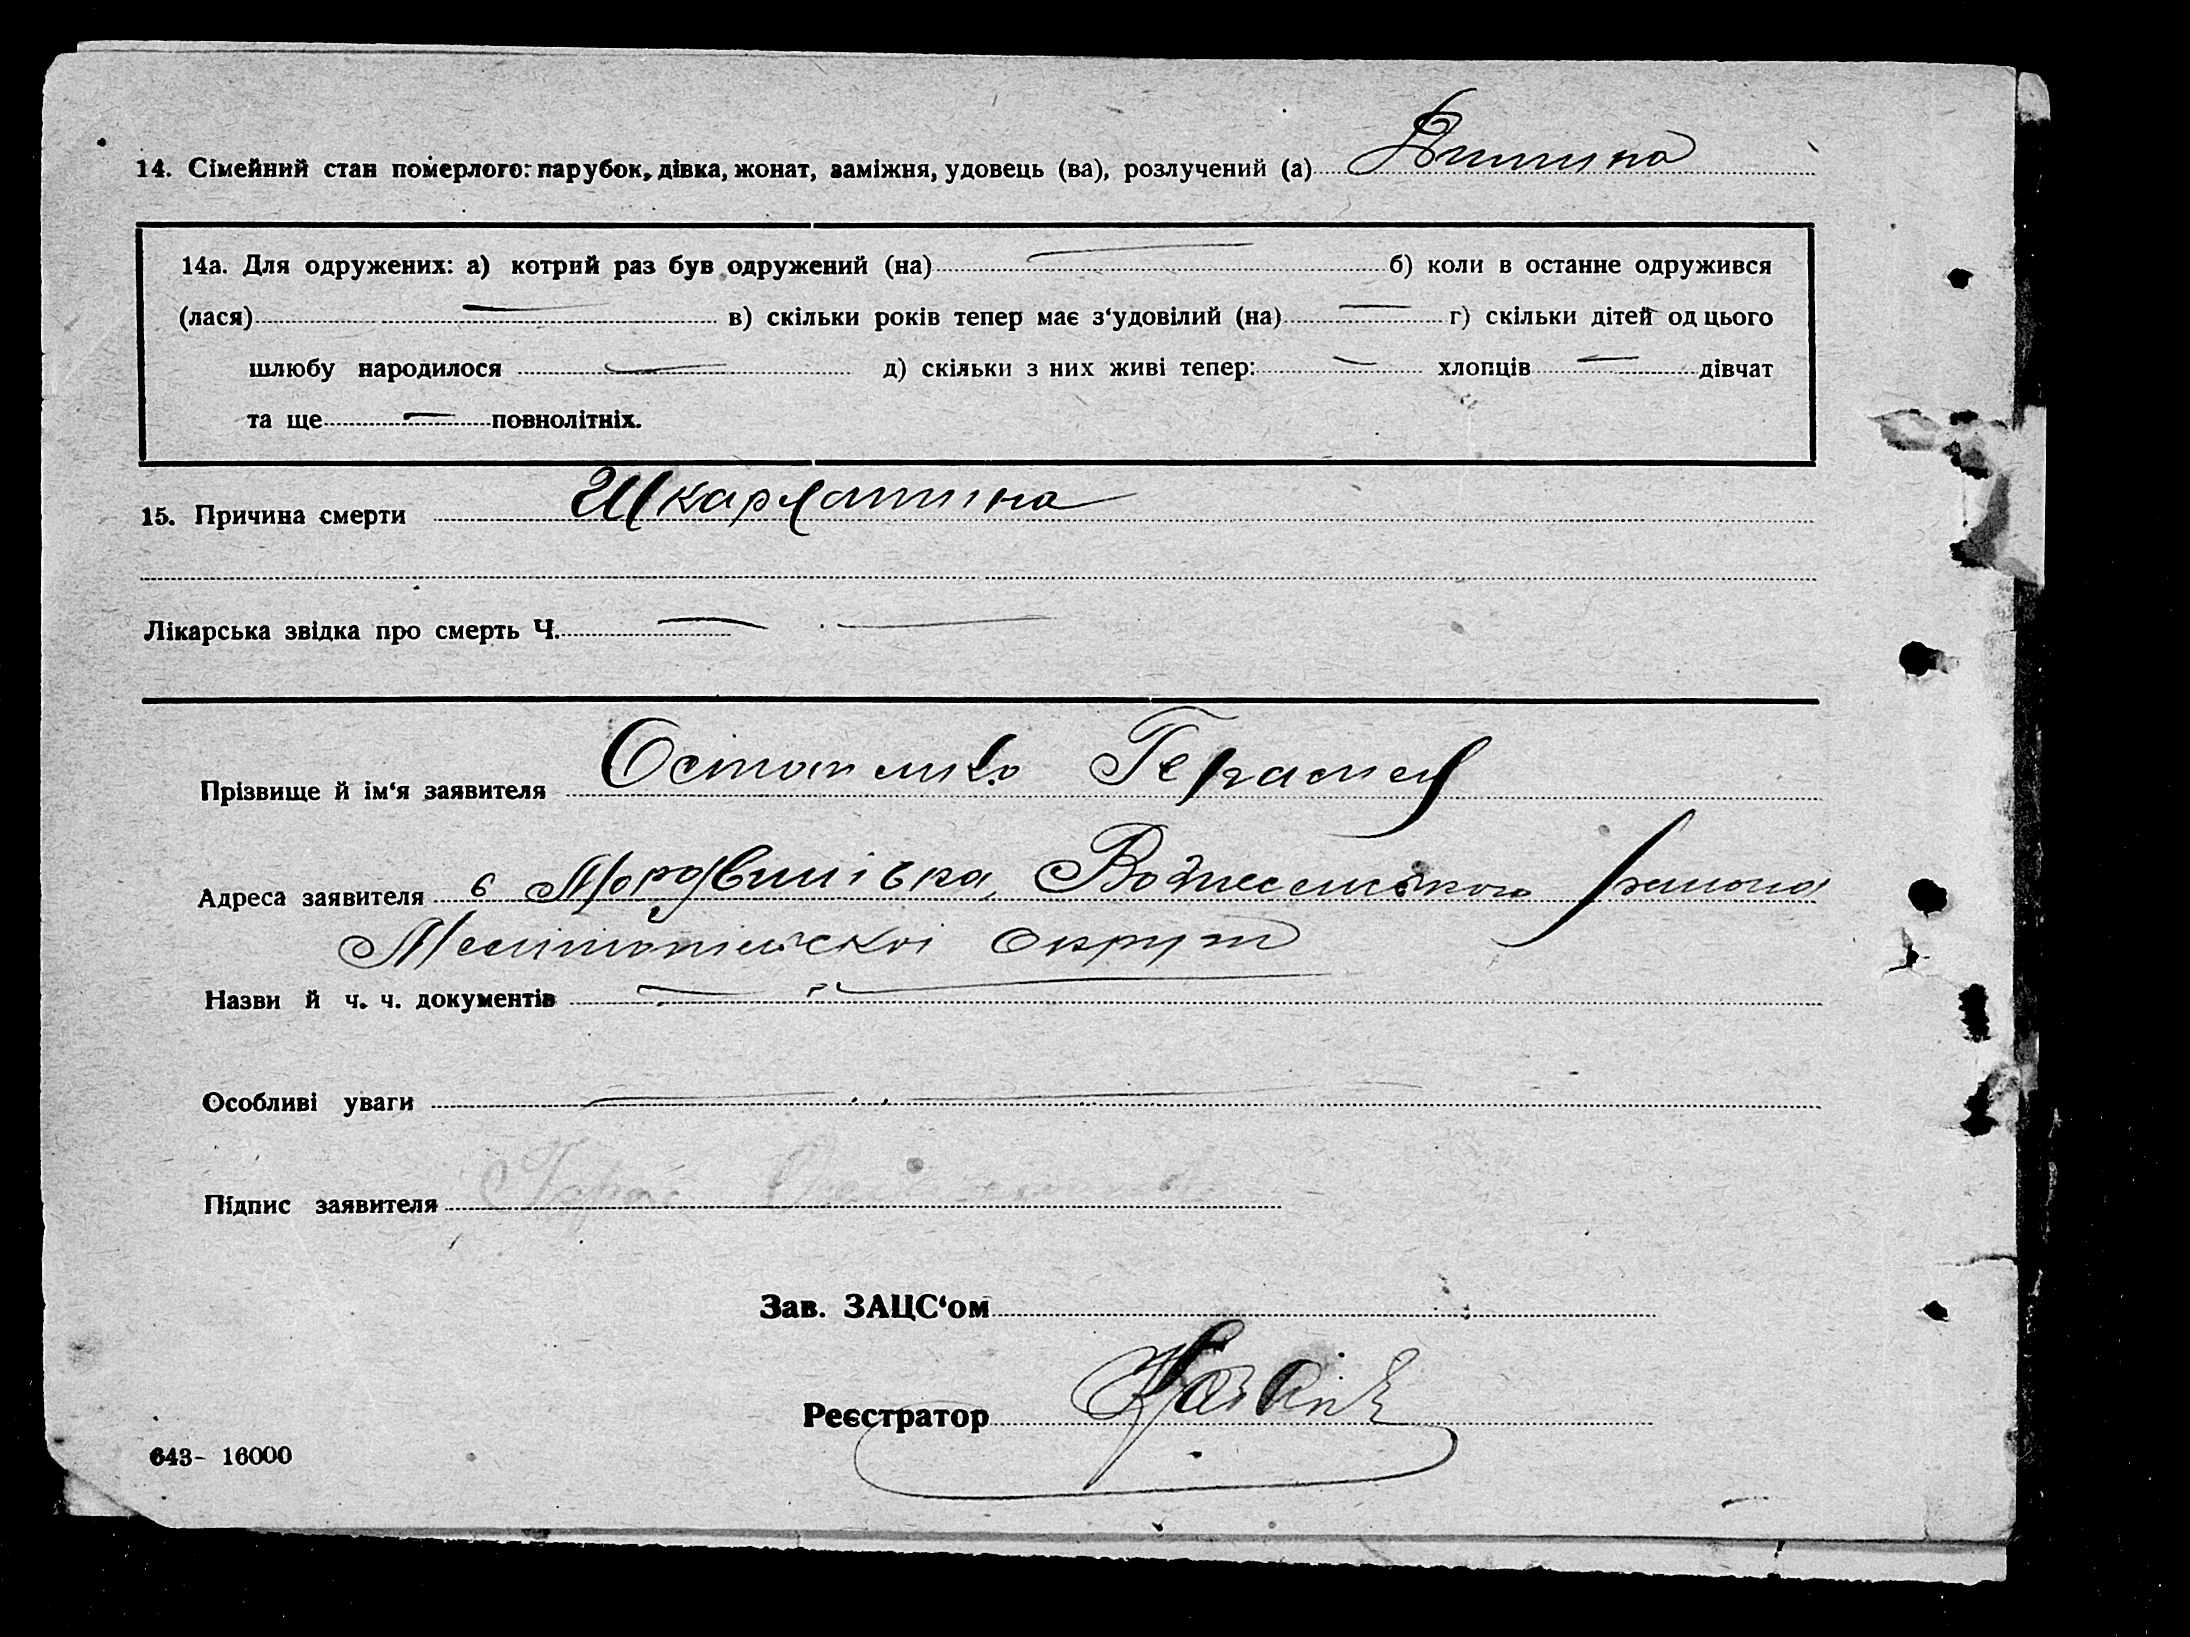 14. Сімейний стан померлого: парубок, дівка, жонат, заміжня, удовець (ва), розлучений (а) Дитина
14а. Для одружених: а) котрий раз був одружений (на) — б) коли в останне одружився
(лася) — в) скільки років тепер має з‘удовілий (на) — г) скільки дітей од цього
шлюбу народилося — д) скільки з них живі тепер: — хлопців — дівчат
та ще — повнолітніх.
15. Причина смерти Шкарлатина
Лікарська звідка про смерть Ч. — —
Прізвище й ім‘я заявителя Остапенко Герасим
Адреса заявителя с Мордвинівка, Вознесенського району
Мелітопільскої округи
Назви й ч. ч. документів — —
Особливі уваги — —
Підпис заявителя
Зав. ЗАЦС‘ом
Реєстратор
643- 16000